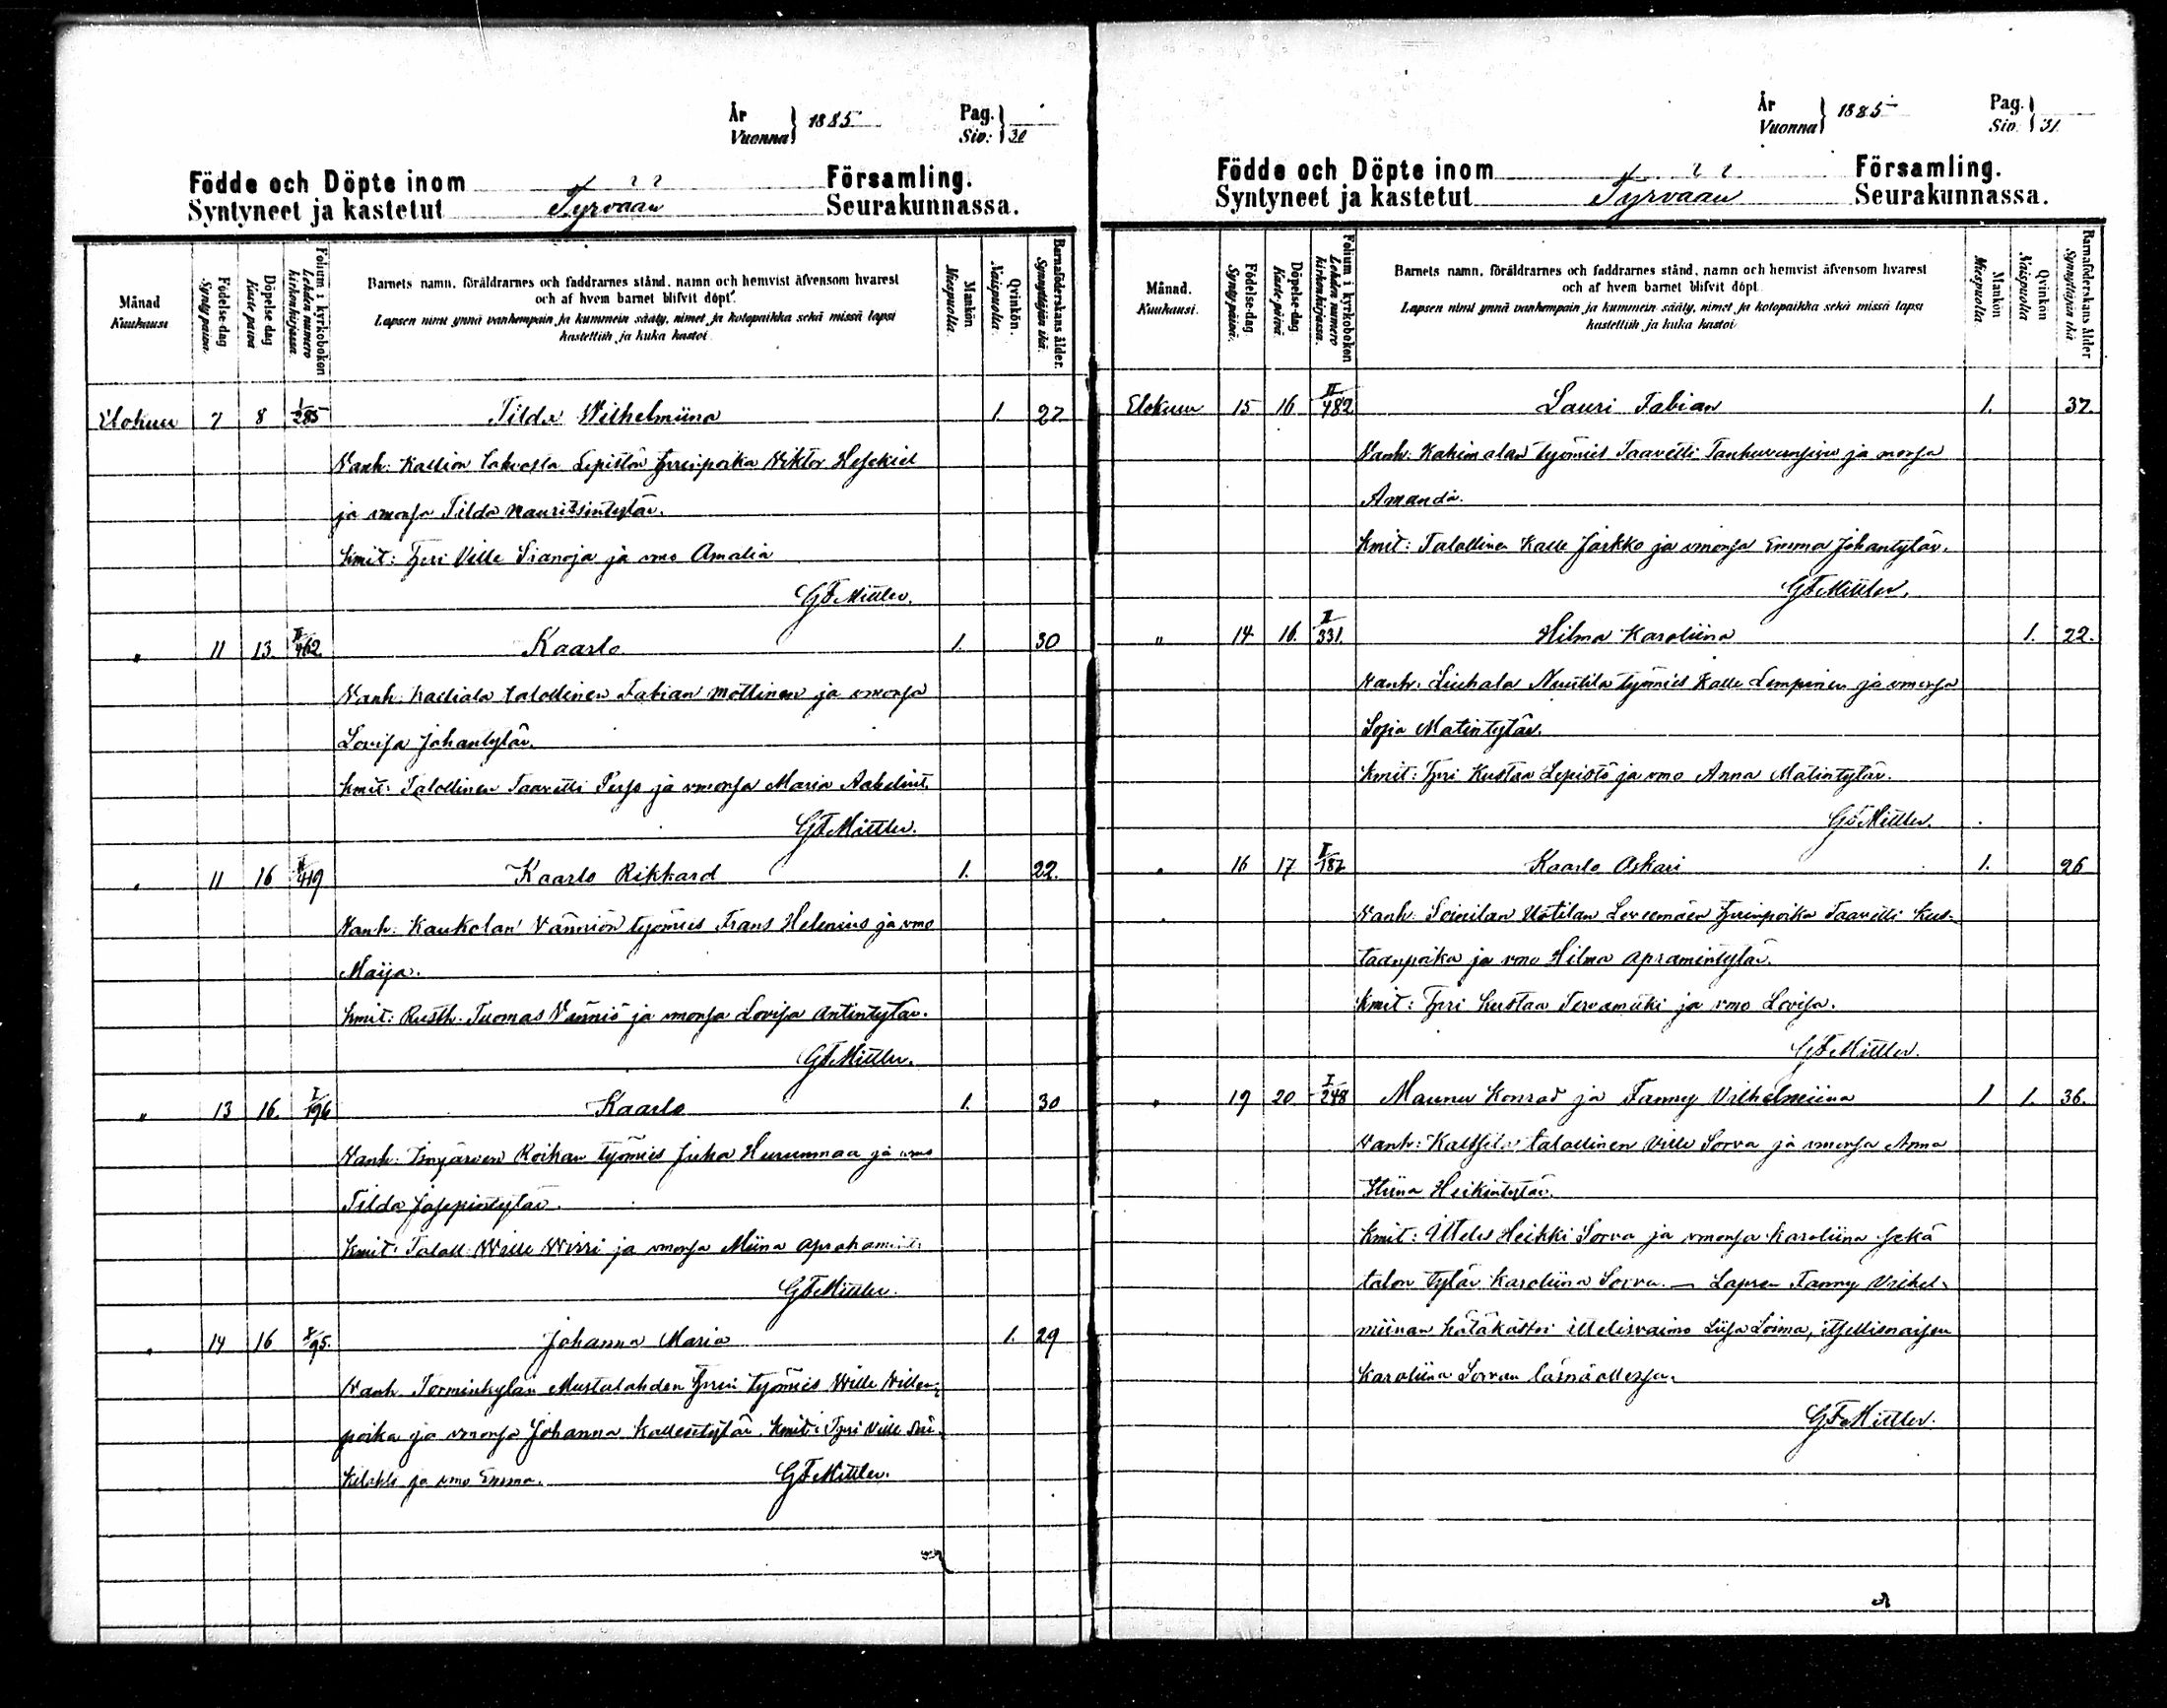 År
Vuonna } 1885
Pag.
Siv: } 30
Födde och Döpte inom Församling.
Syntyneet ja kastetut Tyrvään Seurakunnassa.
Månad
Kuukausi
Födelse-dag
Synty päivä.
Döpelse dag
Kaste päivä
Folium i kyrkoboken
Lehden numero kirkonkirjassa.
Barnets namn, föräldrarnes och faddrarnes stånd, namn och hemvist äfvensom hvarest
och af hvem barnet blifvit döpt.
Lapsen nimi ynnä vanhempain ja kummein sääty, nimet ja kotopaikka sekä missä lapsi
kastettiin ja kuka kastoi
Mankön
Miespuolia.
Qvinkön.
Naispuolia.
Barnaföderskans ålder.
Synnyttäjän ikä.
Elokuu 7 8 I/285 Tilda Wilhelmiina 1. 27
Vanh: Kallion Lepistön Viktor Hesekiel
ja vmonsa Tilda Mauritsintytär.
Kmit: Ville ja vmo Amalia
GFMittler.
" 11 13. II/462. Kaarlo 1. 30
Vanh: Kalliala talollinen Fabian Mottinen ja vmonsa
Lovisa Johantytär.
Kmit: Talollinen Taavetti ja vmonsa Maria
GFMittler.
" 11 16 II/419 Kaarlo Rikkard 1. 22.
Vanh: Kaukolan Vänniön työmies Frans Helenius ja vmo
Maija.
Kmit: Rusth. Tuomas Vänniö ja vmonsa Lovisa Antintytär.
GFMittler.
" 13 16. I/196 Kaarlo 1. 30
Vanh: Roihan työmies Juha Hurunmaa ja vmo
Tilda Josepintytär.
Kmit: Taloll: Wille Wirri ja vmonsa Miina
GFMittler.
" 14 16 I/95. Johanna Maria 1. 29
Vanh. Torminkylän Mustalahden työmies Wille Willen-
poika ja vmonsa Johanna Kallentytär. Kmit: Ville
ja vmo Emma. GFMittler.
År
Vuonna } 1885
Pag.
Siv. } 31.
Födde och Döpte inom Församling.
Syntyneet ja kastetut Tyrvään Seurakunnassa.
Månad.
Kuukausi.
Födelse-dag
Synty päivä.
Döpelse-dag
Kaste päivä
Folium i kyrkoboken
Lehden numero kirkonkirjassa.
Barnets namn, föräldrarnes och faddrarnes stånd, namn och hemvist äfvensom hvarest
och af hvem barnet blifvit döpt.
Lapsen nimi ynnä vanhempain ja kummein sääty, nimet ja kotopaikka sekä missä lapsi
kastettiin ja kuka kastoi
Mankön
Miespuolia
Qvinkön
Naispuolia
Barnaföderskans ålder
Synnyttäjän ikä
Elokuu 15 16 II/482 Lauri Fabian 1. 37.
Vanh: työmies Taavetti ja
Amanda.
Kmit: Talollinen Kalle Jaskko ja vmonsa Emma Johantytär.
GFMittler.
" 14 16. II/331. Hilma Karoliina 1. 22.
Vanh: Liuhala Nuutila työmies Kalle Lempinen ja vmonsa
Sofia Matintytär.
Kmit: Kustaa Lepistö ja vmo Anna Matintytär.
GFMittler.
" 16 17 I/187 Kaarlo Oskari 1. 26
Vanh: Soinilan Uotilan Taavetti Kus-
taanpoika ja vmo Hilma Apramintytär.
Kmit: Kustaa ja vmo Lovisa.
GFMittler.
" 19 20 I/248 Maunu Konrad ja Fanny Vilhelmiina 1 1. 36.
Vanh: talollinen Ville Sorva ja vmonsa Anna
Stiina Heikintytär.
Kmit: Heikki Sorva ja vmonsa Karoliina sekä
talon tytär Karoliina Sorva. — Lapsen Fanny Vilhel-
miinan hätäkastoi Liisa Loima, itsellisnaisen
Karoliina Sorvan läsnäollessa.
GFMittler.